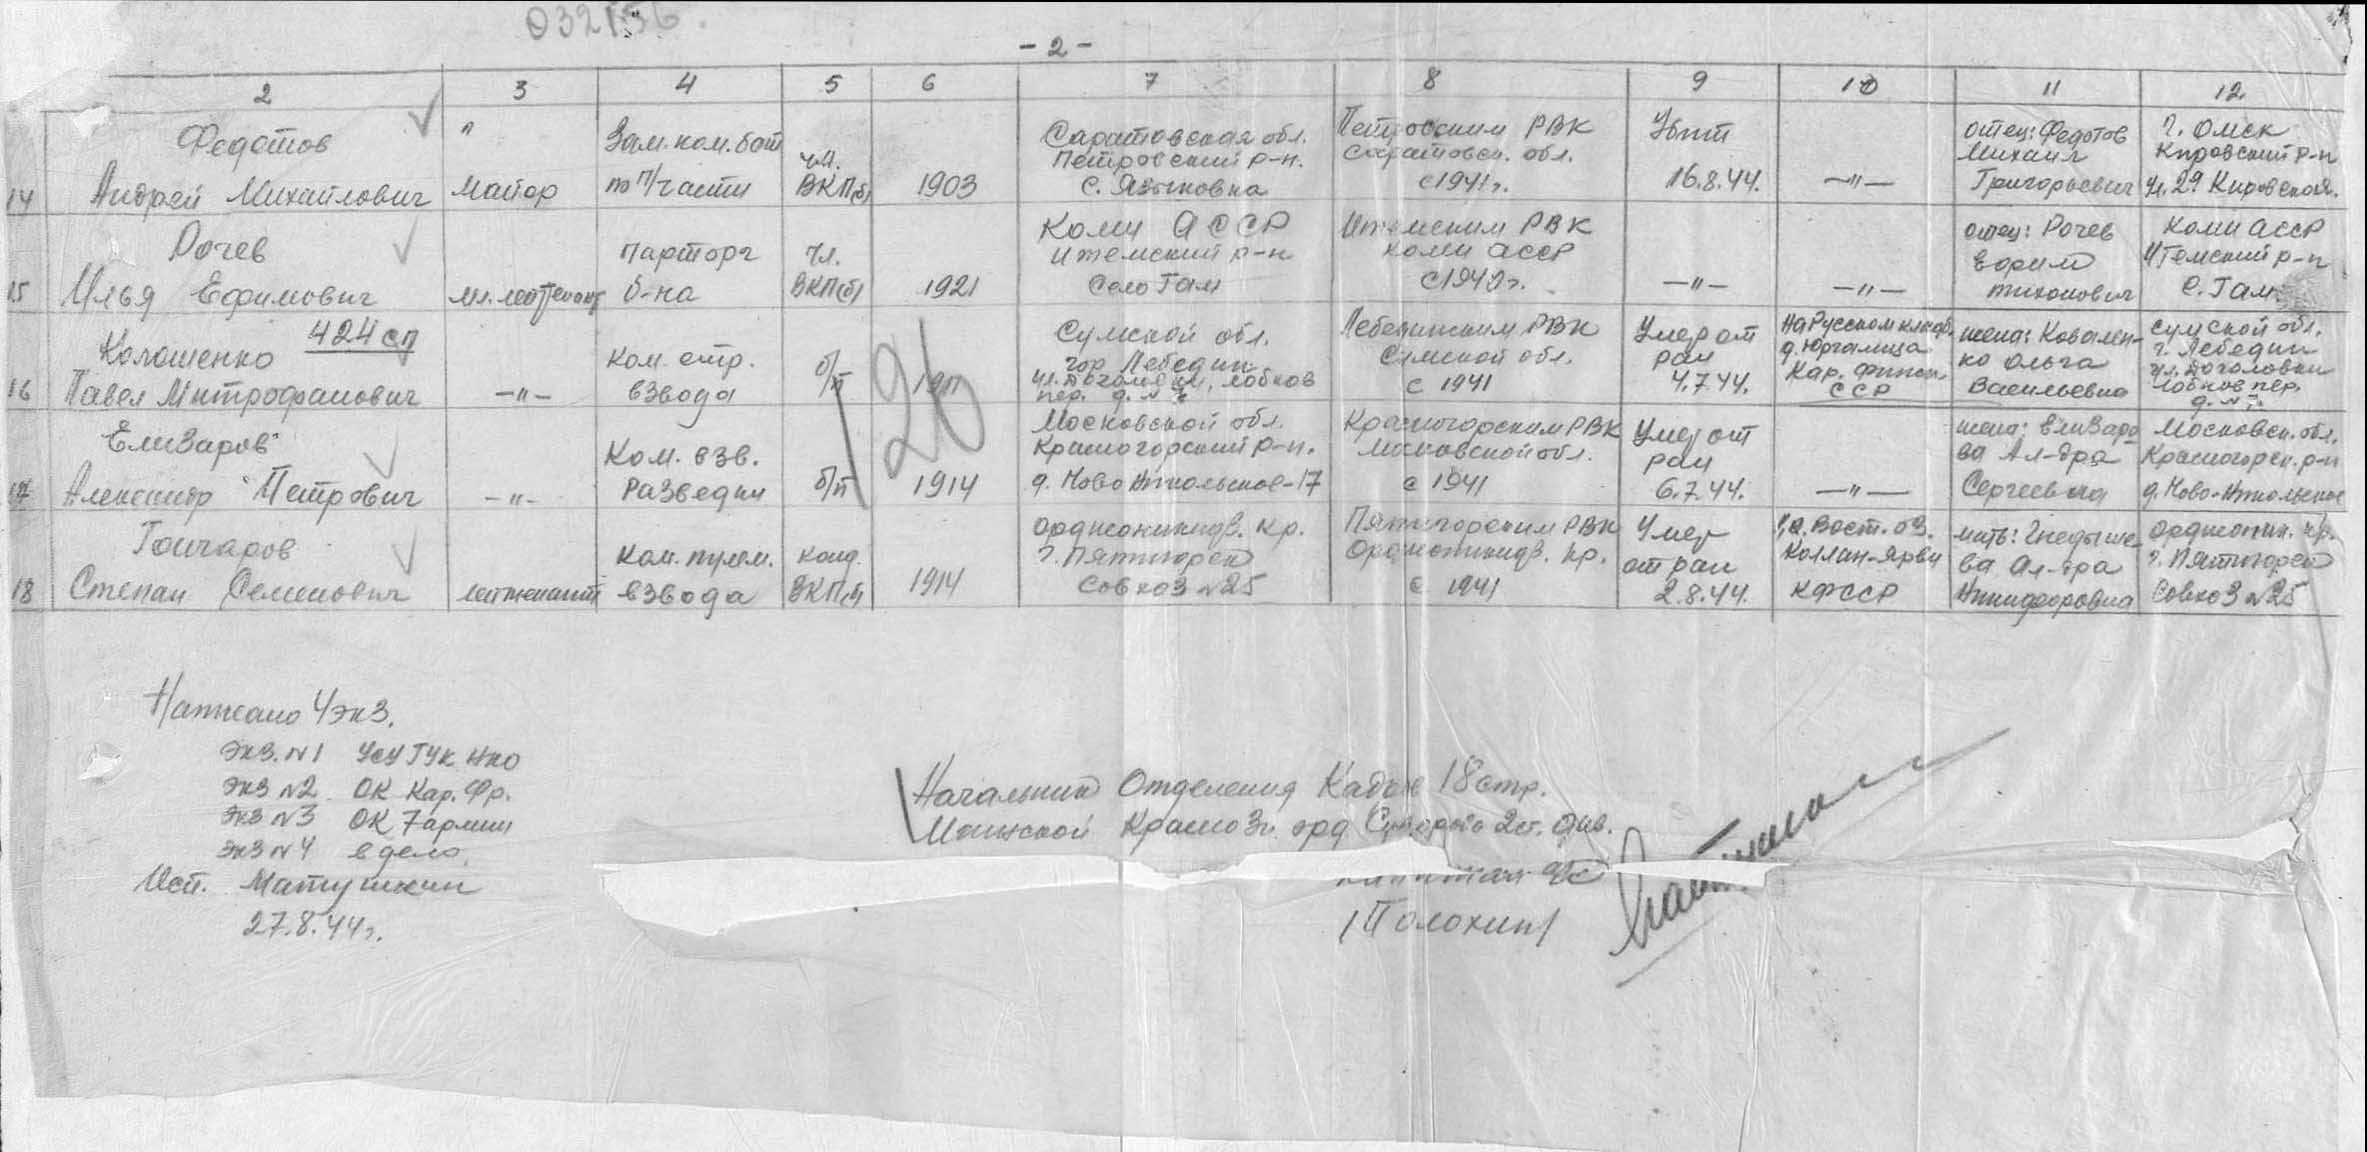 032156
- 2 -
2 3 4 5 6 7 8 9 10 11 12
14
Федотов
Андрей Михайлович
"
Майор
Зам. ком. бат
по п/части
чл.
ВКП(б)
1903
Саратовская обл.
Петровский р-н.
с. Языковка
Петровским РВК
Саратовск. обл.
с 1941 г.
Убит
16.8.44.
—"—
отец: Федотов
Михаил
Григорьевич
г. Омск
Кировский р-н
ул. 29 Кировская.
15
Рочев
Илья Ефимович
мл. лейтенант
парторг
б-на
Чл.
ВКП(б)
1921
Коми АССР
Ижемский р-н
Село Гам
Ижемским РВК
Коми АССР
—"—
—"—
отец: Рочев
Ефим
Тихонович
Коми АССР
Ижемский р-н
с. Гам
424 сп
16
Павел Митрофанович
—"—
Ком. стр.
взвода
б/п
26
Сумской обл.
гор Лебедин
пер. д. №
Лебединским РВК
Сумской обл.
с 1941
Умер от
ран
4.7.44.
На Русском кладб.
Кар. Финск
ССР
жена: Ковален-
ко Ольга
Васильевна
Сумской обл.
г. Лебедин
пер.
17
Елизаров
Александр Петрович
—"—
Ком. взв.
Разведки
б/п
1914
Московской обл.
Красногорский р-н.
д. Ново Никольское-17
Красногорским РВК
Московской обл.
с 1941
Умер от
ран
6.7.44.
—"—
жена: Елизаро
ва Ал-дра
Сергеевна
Московск. обл.
Красногорск. р-н
д. Ново-Никольское
18
Гончаров
Степан Семенович
лейтенант
Ком. пулем.
взвода
канд.
ВКП(б)
1914
Орджоникидз. Кр.
г. Пятигорск
Совхоз №25
Пятигорским РВК
Орджоникидз. Кр.
с 1941
Умер
от ран
2.8.44.
Вост. оз.
Коллан-Ярви
КФССР
мать: Гнедыше
ва Ал-дра
Никифоровна
Орджоник. кр.
г. Пятигорск
Совхоз №25
Написано 4 экз.
Экз. №1 УСУ ГУК НКО
Экз №2 ОК Кар. Фр.
Экз №3 ОК 7 армии
Экз №4 в дело.
Исп. Матушкин
27.8.44 г.
Начальник Отделения Кадров 18 стр.
Мгинской Краснозн. орд. Суворова 2 ст. див.
капитан
/Полохин/